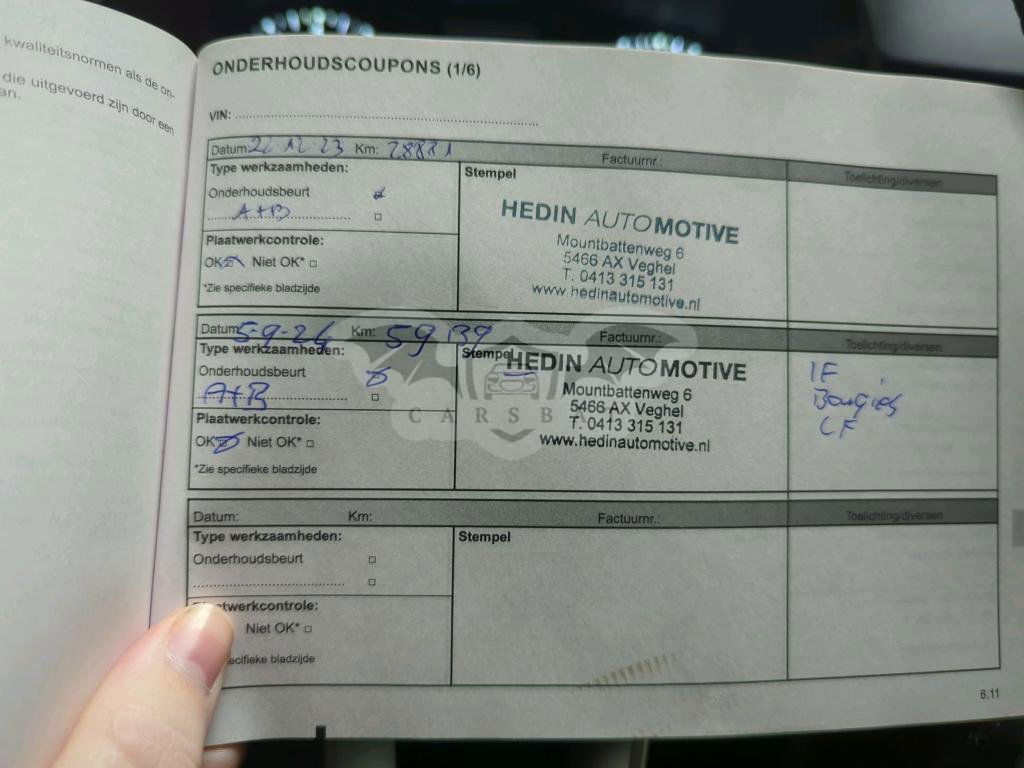 kwaliteitsnormen als de on-
die uitgevoerd zijn door een
an.
ONDERHOUDSCOUPONS (1/6)
VIN:
Datum: 22-12-23 Km: 28881 Factuurnr.: Toelichting/diversen
Type werkzaamheden:
Onderhoudsbeurt
A+B
Plaatwerkcontrole:
OK Niet OK*
*Zie specifieke bladzijde
Stempel
HEDIN AUTOMOTIVE
Mountbattenweg 6
5466 AX Veghel
T. 0413 315 131
www.hedinautomotive.nl
Datum: 5-9-24 Km: 59139 Factuurnr.: Toelichting/diversen
Type werkzaamheden:
Onderhoudsbeurt
A+B
Plaatwerkcontrole:
OK Niet OK*
*Zie specifieke bladzijde
Stempel
HEDIN AUTOMOTIVE
Mountbattenweg 6
5466 AX Veghel
T. 0413 315 131
www.hedinautomotive.nl
IF
Bougies
CF
CARSBA
Datum: Km: Factuurnr.: Toelichting/diversen
Type werkzaamheden:
Onderhoudsbeurt
Plaatwerkcontrole:
Niet OK*
ecifieke bladzijde
Stempel
6.11